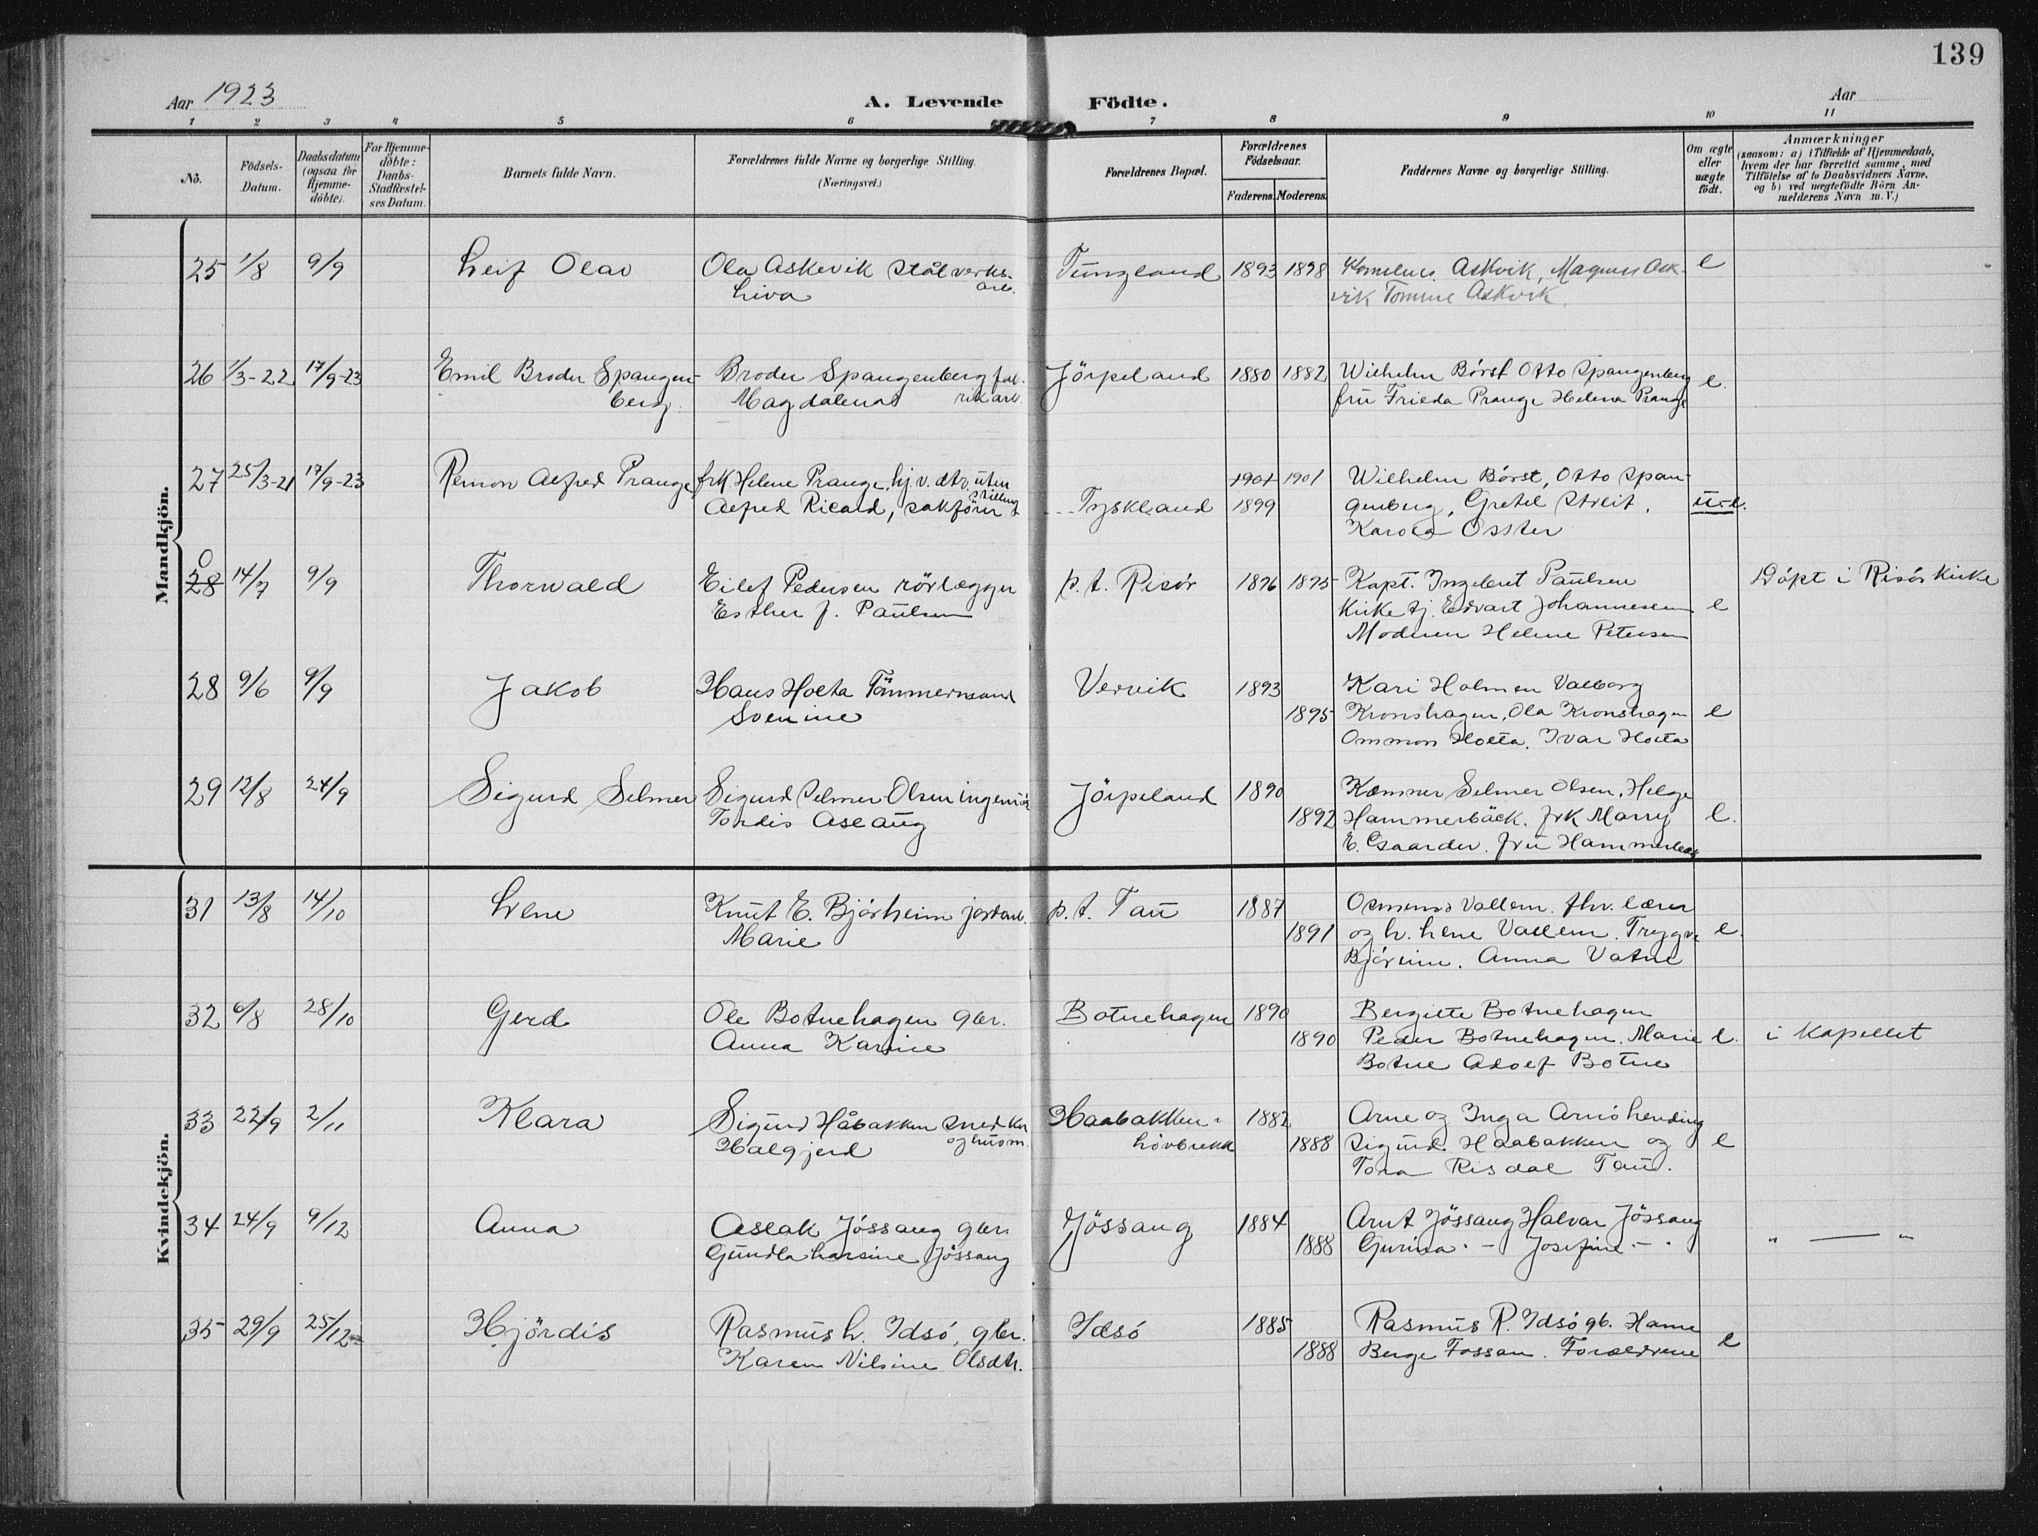 139
Aar 1923
A. Levende Födte.
Aar
1 2 3 4 5 6 7 8 9 10 11
Nö.
Födsels-
Datum.
Daabsdatum
(ogsaa for
Hjemme-
döbte).
For Hjemme-
döbte:
Daabs-
Stadfæstel-
ses Datum.
Barnets fulde Navn.
Forældrenes fulde Navne og borgerlige Stilling.
(Næringsvei.)
Forældrenes Bopæl.
Forældrenes
Födselsaar.
Faderens. Moderens.
Faddernes Navne og borgerlige Stilling.
Om ægte
eller
uægte
födt.
Anmærkninger
(saasom: a) i Tilfælde af Hjemmedaab,
hvem der har forrettet samme, med
Tilföielse af to Daabsvidners Navne,
og b) ved uægtefödte Börn An-
melderens Navn m. V.)
Mandkjön.
25 1/8 9/9 Leif Olav Ola Askevik Stålverks- Tungland 1893 1898 Kornelius Askvik, Magnus Ask- e
arb.
Liva vik Tomine Askvik.
26 1/3-22 17/9-23 Emil Broder Spangen- Broder Spangenberg fab- Jörpeland 1880 1882 Wilhelm Börst Otto Spangenberg e.
berg. Magdalena rik arb. fru Frieda Prange Helena Prange
27 25/3-21 17/9-23 Alfred Prange frk Helene Prange, hj.v. dtr uten 1901 1901 Wilhelm Börst, Otto Span-
stilling
Alfred Ricard, sakförer Tyskland 1899 genberg, Gretel Streit. u.e.
Karola Osster
0
28 14/7 9/9 Thorwald Eilef Pedersen rörlægger p.t. Risör 1896 1895 Kapt. Ingebret Paulsen Döpt i Risör kirke
Esther f. Paulsen kirketj. Edvart Johannesen e
Moderen Helene Petersen
28 9/6 9/9 Jakob Hans Holta Tömmermand Vervik 1893 Kari Holmen Valborg
Svenine 1895 Kronshagen, Ola Kronshagen e
Ommon Holta. Ivar Holta
29 12/8 24/9 Sigurd Selmer Sigurd Selmer Olsen ingeniör Jörpeland 1890 Kæmner Selmer Olsen, Helge
Tordis Aslaug 1892 Hammerbäck. frk Marry e.
E. Gaarder. fru Hammerbæk
Kvindekjön.
31 13/8 14/10 Lene Knut E. Björheim jordarb. p.t. Tau 1887 Osmund Vallem. fhv. lærer
Marie 1891 og h. Lene Vallem. Trygve e.
Björeim. Anna Vatne
32 6/8 28/10 Gerd Ole Botnehagen gbr. Botnehagen 1890 Bergitte Botnehagen
Anna Karine 1890 Peder Botnehagen. Marie e. i Kapellet
Botne Adolf Botne
33 22/9 2/11 Klara Sigurd Håbakken snedker Haabakken 1882 Arne og Inga
og husm.
Halgjerd Lövbrekk 1888 Sigurd Haabakken og e
Tora Risdal Tau.
34 24/9 9/12 Anna Aslak Jössang gbr. Jössang 1884 Arnt Jössang Halvar Jössang
Gundla Larsine Jössang 1888 Gurina - " - Josefine - " - " — "
35 29/9 25/12 Hjördis Rasmus L. Idsö, gbr. Idsö 1885 Rasmus R. Idsö gb. Hanne
Karen Nilsine Olsdtr. 1888 Berge Fossan. Forældrene e